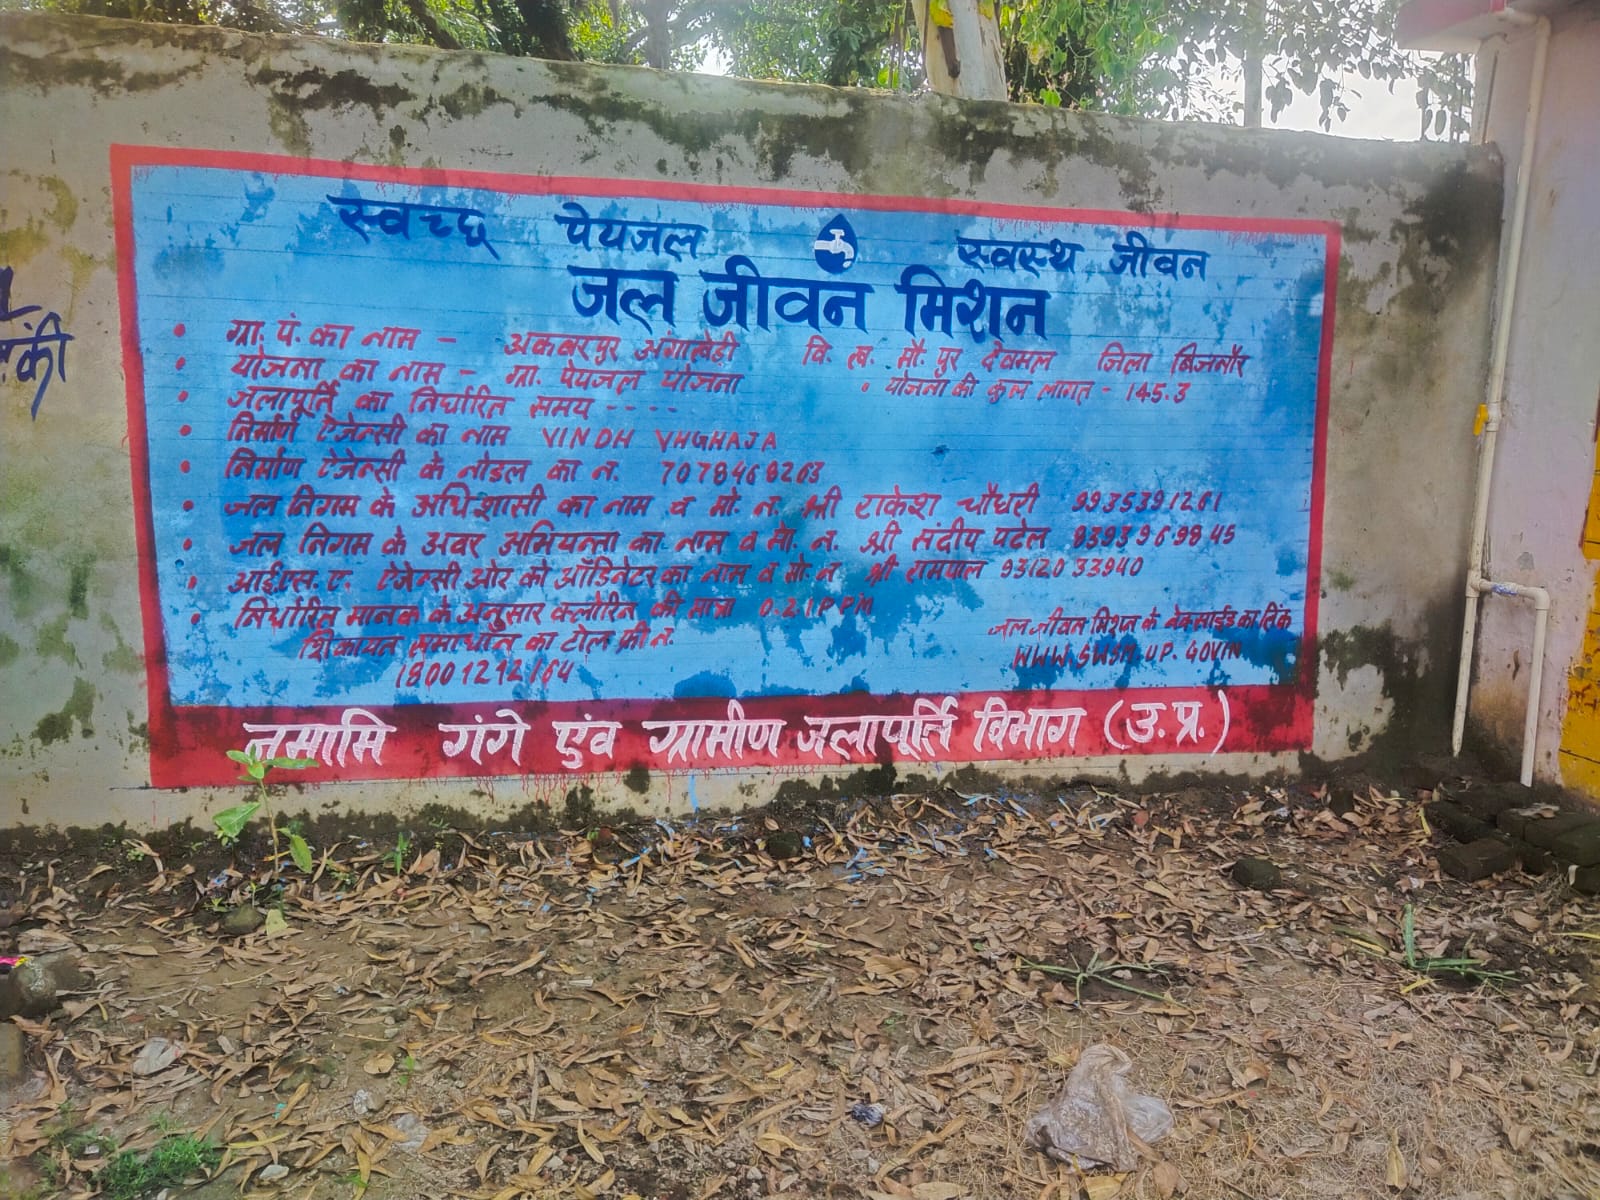 स्वच्छ पेयजल स्वस्थ जीवन
जल जीवन मिशन
ग्रा. पं. का नाम - अकबरपुर अंगाखेड़ी वि. ख. मौ. पुर देवमल जिला बिजनौर
योजना का नाम - ग्रा. पेयजल योजना • योजना की कुल लागत - 145.3
जलापूर्ति का निर्धारित समय - - - -
निर्माण ऐजेन्सी का नाम VINDH VHGHAJA
निर्माण ऐजेन्सी के नोडल का न. 7078468203
जल निगम के अधिशासी का नाम व मो. न. श्री राकेश चौधरी 9935391261
जल निगम के अवर अभियन्ता का नाम व मो. न. श्री संदीप पटेल 8393969845
आईएस. ए. ऐजेन्सी ओर को ऑडिनेटर का नाम व मो. न श्री रामपाल 9312033940
निर्धारित मानक के अनुसार क्लोरिन की मात्रा 0.21PPM
शिकायत समाधान का टोल फ्री न.
18001212164
जल जीवन मिशन के वेबसाईड का लिंक
WWW.SWSM.UP.GOVIN
नमामि गंगे एंव ग्रामीण जलापूर्ति विभाग (उ.प्र.)